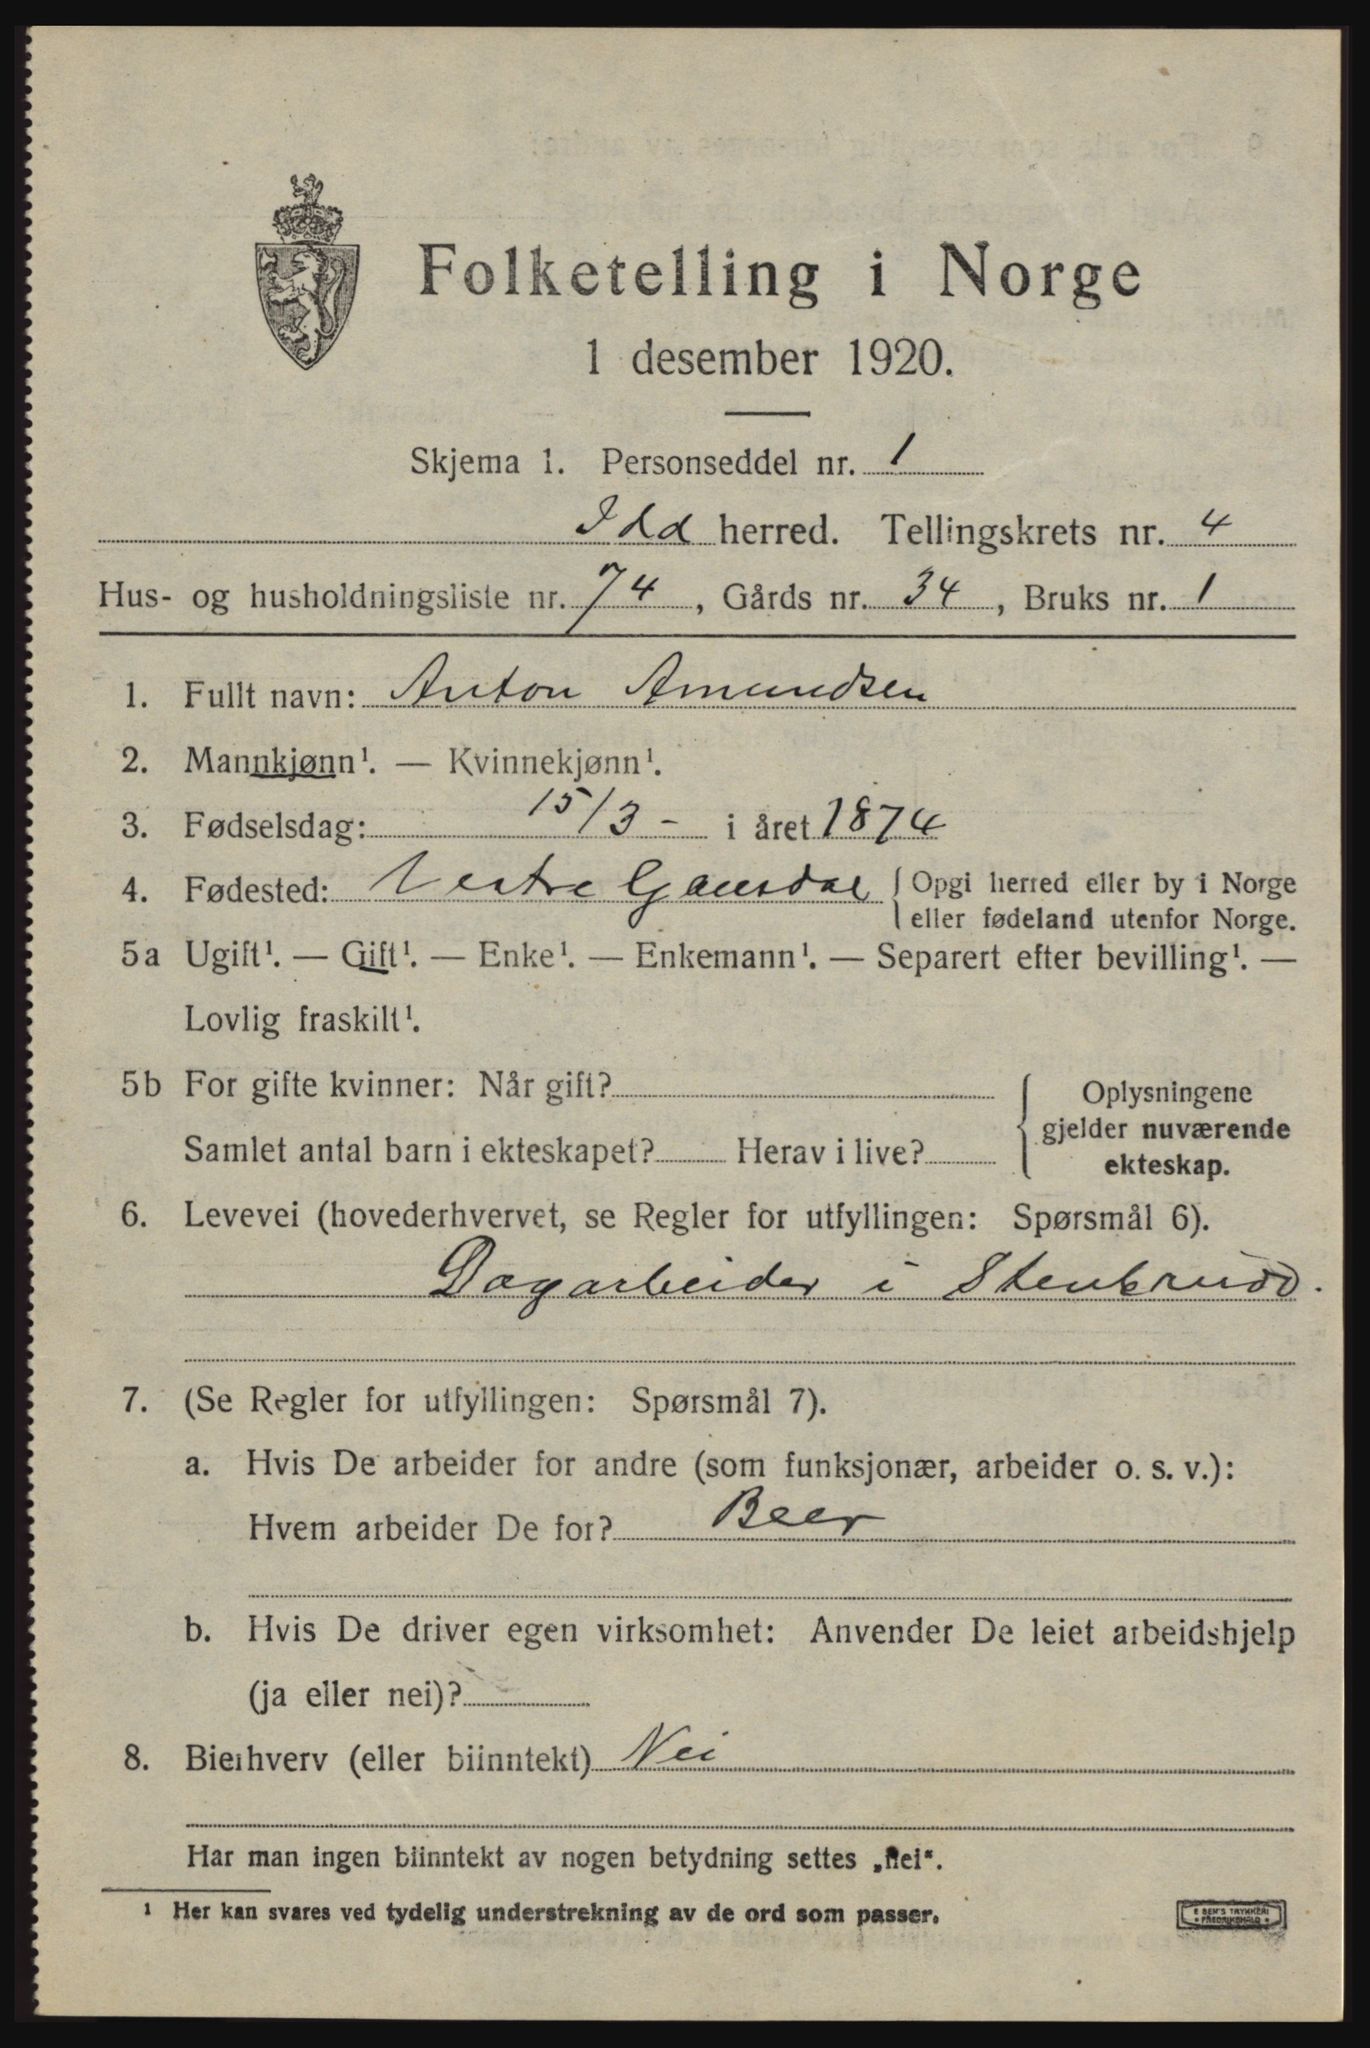 Folketelling i Norge
1 desember 1920.
Skjema 1. Personseddel nr. 1
Idd herred. Tellingskrets nr. 4
Hus- og husholdningsliste nr. 74, Gårds nr. 34, Bruks nr. 1
1. Fullt navn: Anton Amundsen
2. Mannkjønn¹. — Kvinnekjønn¹.
3. Fødselsdag: 15/3 - i året 1874
4. Fødested: Vestre Gausdal { Opgi herred eller by i Norge
eller fødeland utenfor Norge.
5a Ugift¹. — Gift¹. — Enke¹. — Enkemann¹. — Separert efter bevilling¹. —
Lovlig fraskilt¹.
5b For gifte kvinner: Når gift? { Oplysningene
gjelder nuværende
Samlet antal barn i ekteskapet? Herav i live?
ekteskap.
6. Levevei (hovederhvervet, se Regler for utfyllingen: Spørsmål 6).
Dagarbeider i Stenbrudd.
7. (Se Regler for utfyllingen: Spørsmål 7).
a. Hvis De arbeider for andre (som funksjonær, arbeider o. s. v.):
Hvem arbeider De for? Beer
b. Hvis De driver egen virksomhet: Anvender De leiet arbeidshjelp
(ja eller nei)?
8. Bierhverv (eller biinntekt) Nei
Har man ingen biinntekt av nogen betydning settes „nei“.
¹ Her kan svares ved tydelig understrekning av de ord som passer.
E SEM'S TRYKKERI
• FREDRIKSHALD •